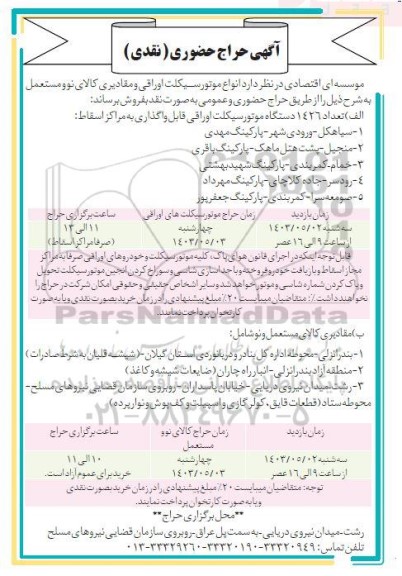 آگهی حراج حضوری (نقدی)
موسسه ای اقتصادی در نظر دارد انواع موتورسیکلت اوراقی و مقادیری کالای نو و مستعمل
به شرح ذیل را از طریق حراج حضوری و عمومی به صورت نقد بفروش برساند:
الف) تعداد ۱۴۲۶ دستگاه موتورسیکلت اوراقی قابل واگذاری به مراکز اسقاط:
۱- سیاهکل- ورودی شهر- پارکینگ مهدی
۲- منجیل- پشت هتل ماهک- پارکینگ باقری
۳- خمام- کمربندی- پارکینگ شهید بهشتی
۴- رودسر- جاده کلاچای- پارکینگ مهرداد
۵- صومعه سرا- کمربندی- پارکینگ جعفرپور
زمان بازدید زمان حراج موتورسیکلت های اوراقی ساعت برگزاری حراج
سه شنبه ۱۴۰۳/۰۵/۰۲ چهارشنبه ۱۱ الی ۱۳
از ساعت ۹ الی ۱۶ عصر ۱۴۰۳/۰۵/۰۳ (صرفا مراکز اسقاط)
قابل توجه اینکه در اجرای قانون هوای پاک، کلیه موتورسیکلت و خودروهای اوراقی صرفا به مراکز
مجاز اسقاط و بازیافت خودرو فروخته و با جداسازی شاسی و سوراخ کردن انجین موتورسیکلت تحویل
و پاک کردن شماره شاسی و موتور خواهد شد و سایر اشخاص حقیقی و حقوقی امکان شرکت در حراج را
نخواهند داشت؛ متقاضیان میبایست ۲۰٪ مبلغ پیشنهادی را در زمان خرید بصورت نقدی و یا به صورت
کارتخوان پرداخت نمایند.
ب) مقادیری کالای مستعمل و نو شامل:
۱- بندر انزلی- محوطه اداره کل بنادر و دریانوردی استان گیلان- (شیشه قلیان به شرط صادرات)
۲- منطقه آزاد بندر انزلی- انبار راه چاران (ضایعات شیشه و کاغذ)
۳- رشت- میدان نیروی دریایی- خیابان پاسداران- روبروی سازمان قضایی نیروهای مسلح-
محوطه ستاد (قطعات قایق، کولر گازی و اسپیلت و کف پوش و نوار پرده)
زمان بازدید زمان حراج کالای نو و مستعمل ساعت برگزاری حراج
سه شنبه ۱۴۰۳/۰۵/۰۲ چهارشنبه ۱۰ الی ۱۱
از ساعت ۹ الی ۱۶ عصر ۱۴۰۳/۰۵/۰۳ خرید برای عموم آزاد است.
توجه: متقاضیان میبایست ۲۰٪ مبلغ پیشنهادی را در زمان خرید بصورت نقدی
و یا به صورت کارتخوان پرداخت نمایند.
**محل برگزاری حراج**
رشت- میدان نیروی دریایی- به سمت پل عراق- روبروی سازمان قضایی نیروهای مسلح
تلفن تماس: ۳۳۳۲۰۹۴۹-۳۳۳۲۰۱۹۰-۳۳۳۲۹۲۶۰-۰۱۳
ParsNamadData
۰۲۱-۸۸۳۴۹۶۷۰-۵